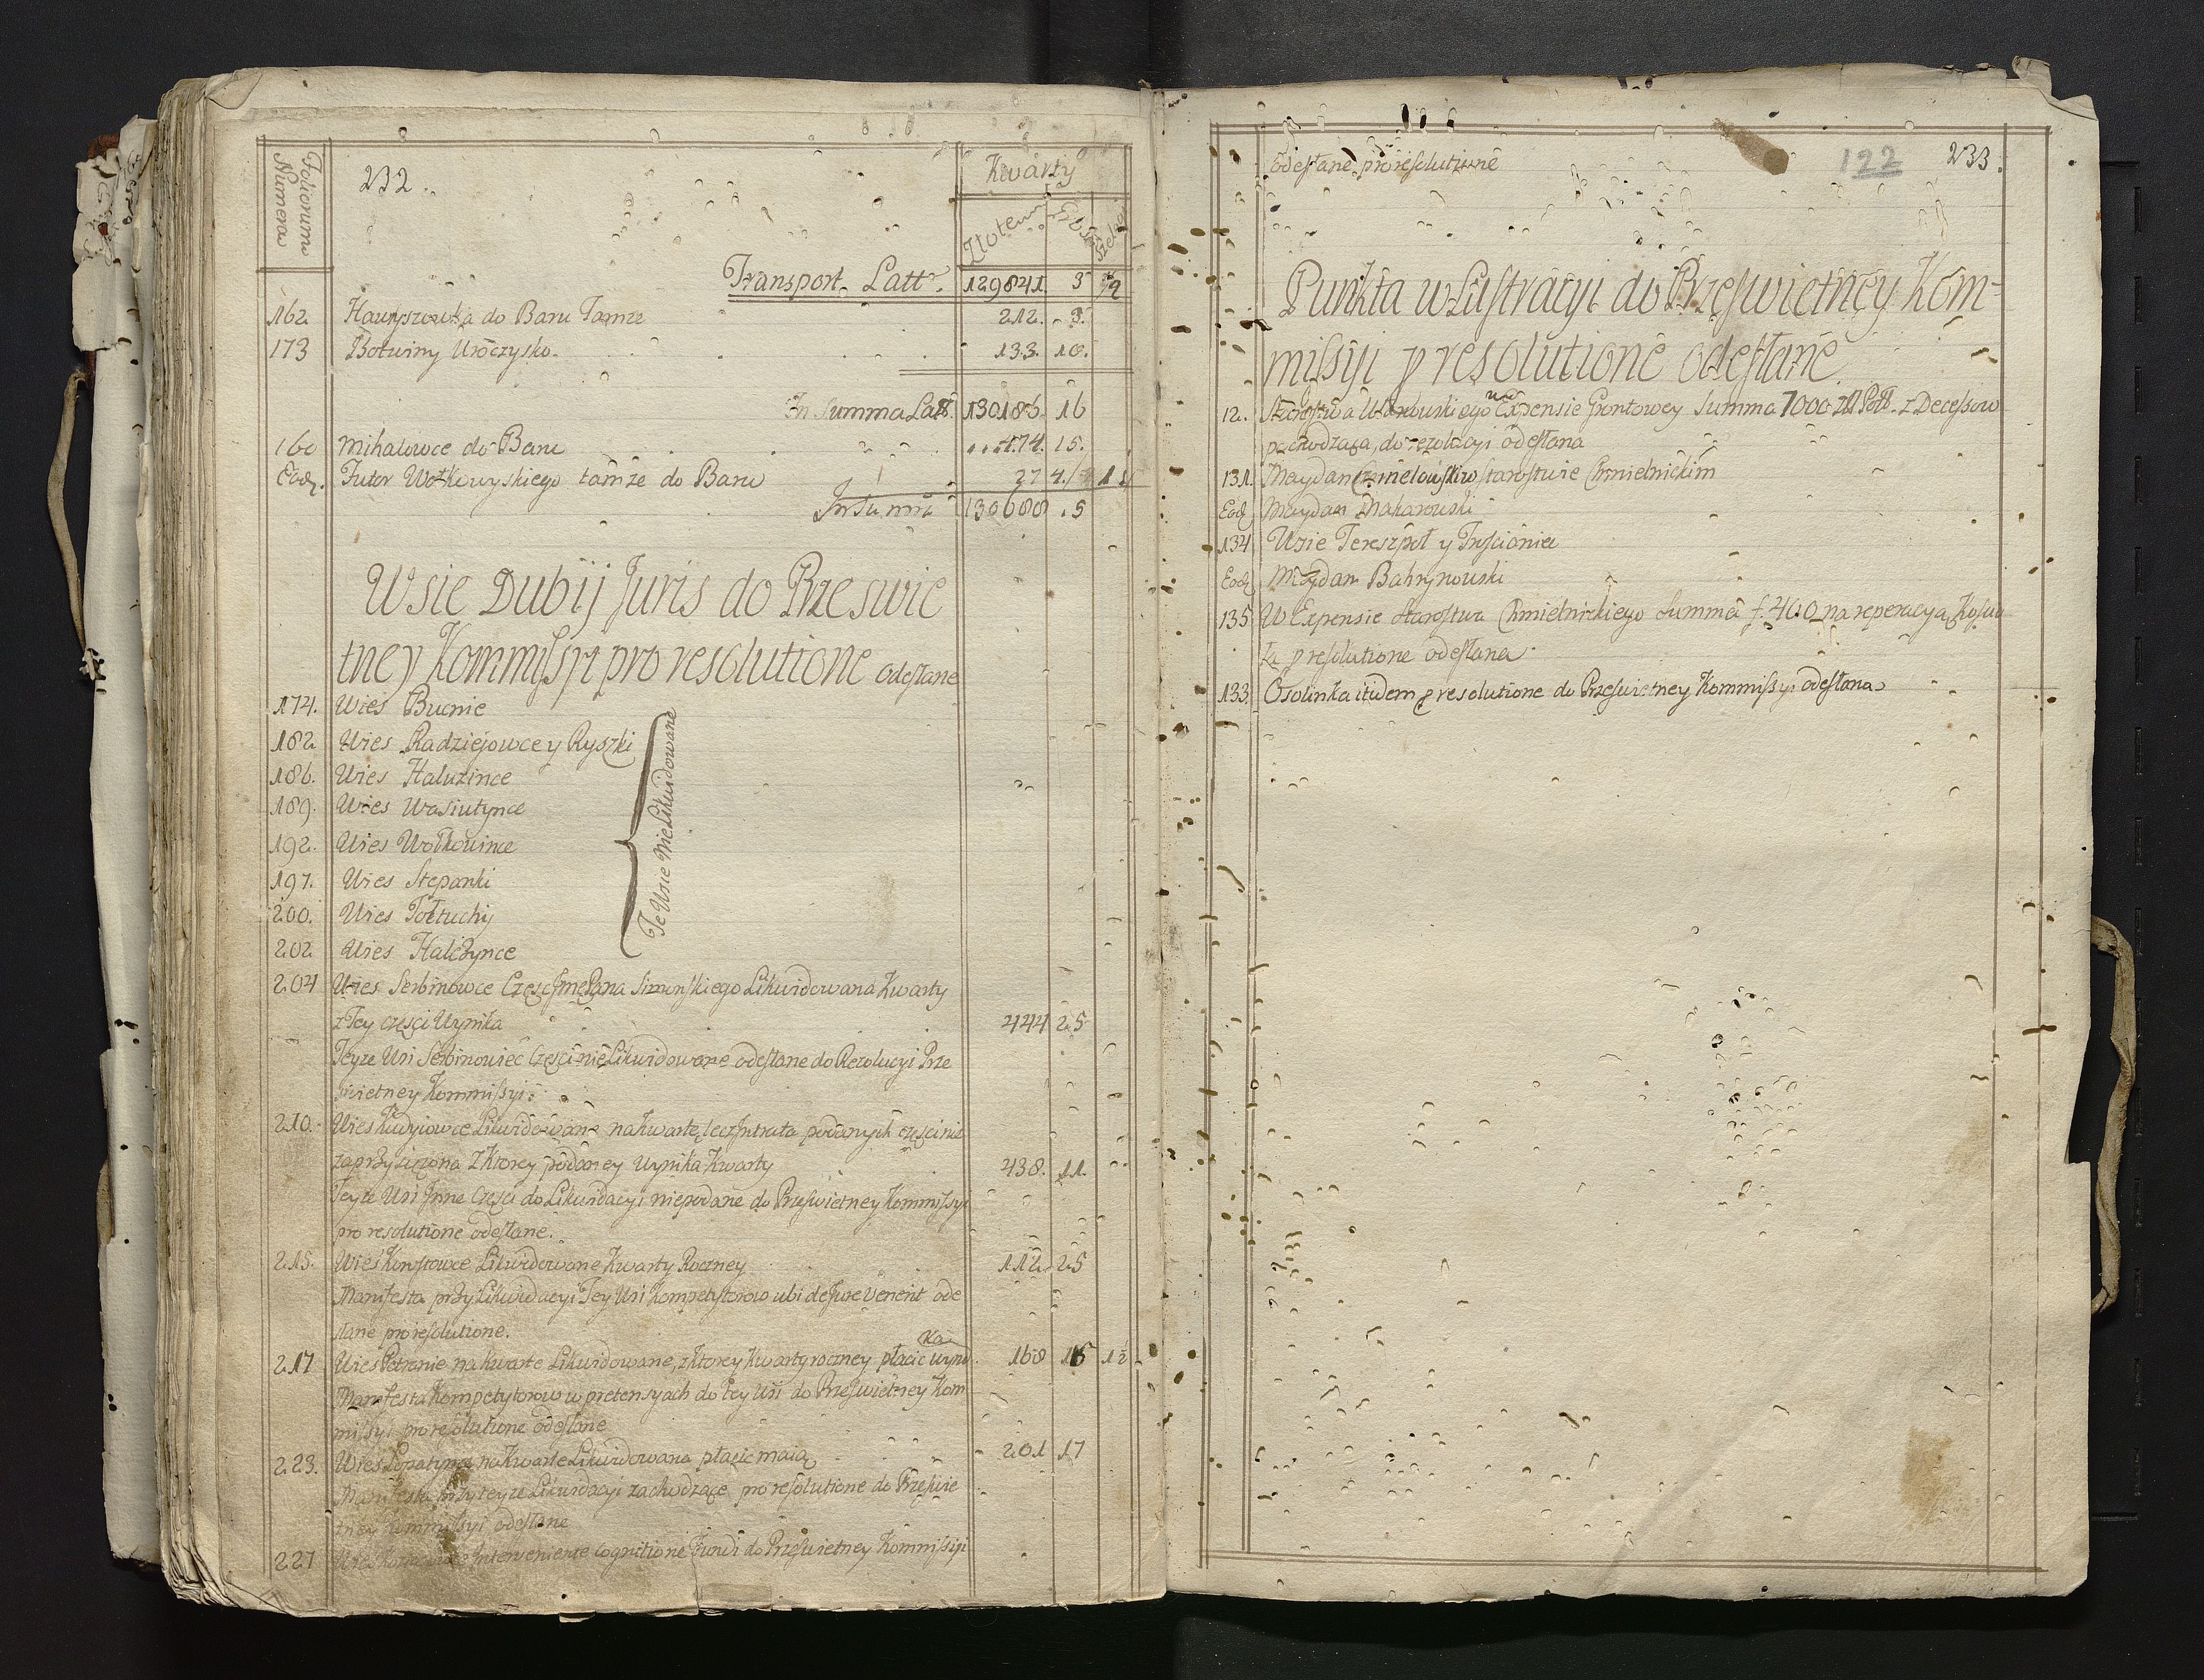 Foliorum Numera
232.
Kwarty
Złotemi Grosz Szelągi
Transport Latt. 129841. 3 1/2
162 do Baru Tamze 212. 3.
173 Botwiny Uroczysko. 133. 10.
In Summa Latt. 130186. 16
160 Mihalowce do Baru 474. 15.
Eod. Futor Wołkowyskiego tamze do Baru 27 4. 1
In Summa 130688 . 5
Wsie Dubij Juris do Przeswie
tney Kommissyi pro resolutione odesłane
174. Wies Bucnie
182 Wies Radziejowce y Ryszki
186. Wies Haluzince
189. Wies Wasiutynce
192. Wies Wołkowince
197. Wies Stepanki
200. Wies Tołtuchy
202 Wies Halczynce
Te Wsie Nie Likwidowane
204 Wies Serbinowce Częsc Jme Pana Likwidowana Kwarty
z Tey części Wynika 444 25
Teyze Wsi Serbinowiec Części nie Likwidowane odesłane do Rezolucyi Prze
swietney Kommissyi.
210. Wies Kudyiowce Likwidowane na kwartę, lecz Intrata podanych części nie
zaprzysiężona z ktorey podaney Wynika Kwarty 438. 11.
Teyze Wsi Inne Części do Likwidacyi niepodane do Przeswietney Kommissyi
pro resolutione odesłane.
215. Wies Likwidowane Kwarty Roczney 112. 25
Manifesta przy Likwidacyi Tey Wsi Kompetytorow ubi de Jure Venerit ode
słane pro resolutione.
217 Wies Petranie na kwartę Likwidowane, z ktorey Kwarty roczney płacic wyni ka 168 15 1 1/2
Manifesta Kompetytorow w pretensyach do tey Wsi do Przeswietney Kom
missyi pro resolutione odesłane
223. Wies Lopatynce na Kwartę Likwidowana płacic maią 201 17
Manifesta przy teyze Likwidacyi zachodzące pro resolutione do Przeswie
tney Kommissyi odesłane
227 Interveniente cognitione fundi do Przeswietney Kommissyi
odesłane pro resolutione
122
233.
Punkta w Lustracyi do Przeswietney Kom-
missyi p resolutione odesłane.
12. Starostwa w Expensie Grontowey Summa 7000 z Decessow
pochodząca, do rezolucyi odesłana
131. Maydan w starostwie Chmielnickim
Eod Maydan Makarowski
134 Wsie Tereszpol y Trościaniec
Eod Maydan Bahrynowski
135 W Expensie Starostwa Chmielnickiego Summa f. 400 na reperacyą Koscio
ła p resolutione odesłana.
133 Osolinka itidem p resolutione do Przeswietney Kommissyi odesłana